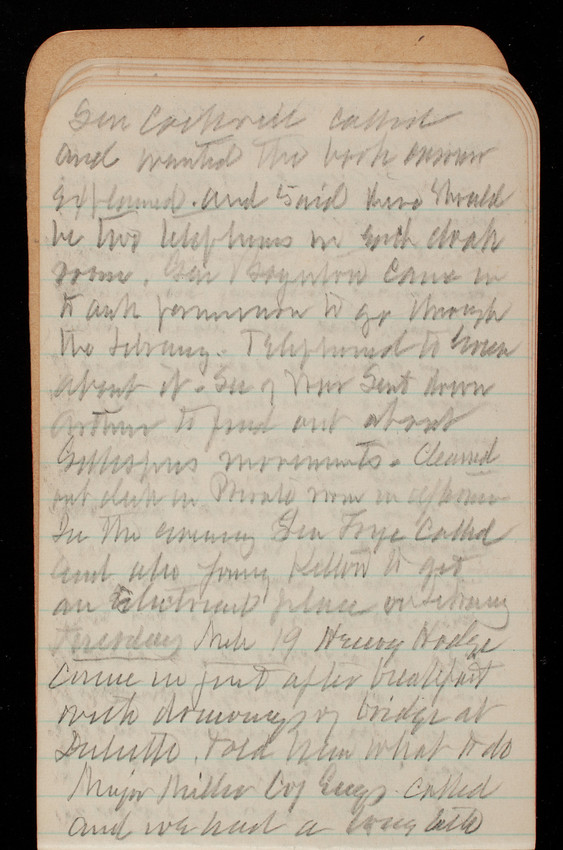 Sen Cockrill called
and wanted the book
explained. and said there should
be two telephones in each cloak
room. Gen Boynton came in
to ask permission to go through
the Library. Telephoned to Green
about it. Sec of War sent down
to find out about
Gillespies movements. Cleaned
out desk in Private room in afternoon
In the evening Gen Frye called
and also young to get
an Electrical place in Library
Tuesday Mch 19 Henry Hodge
came in just after breakfast
with drawings of bridge at
Duluth. Told him what to do
Major Miller Cof Engs. called
and we had a long talk